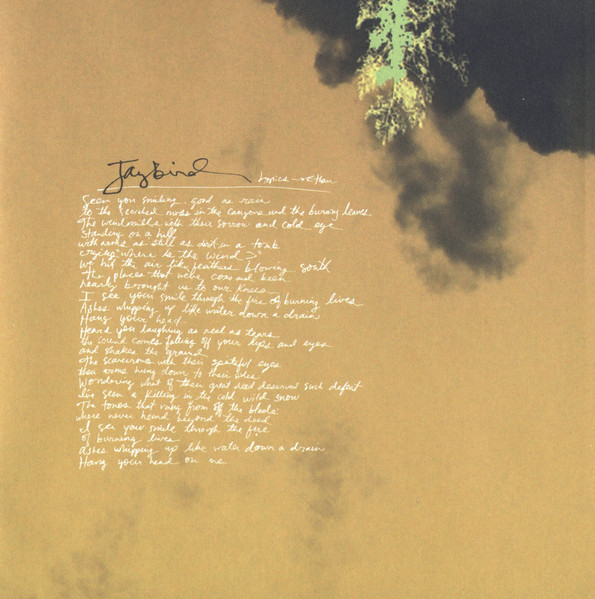 Jaybird
Lyrics
Seen you smiling, good as rain
to the scorched in the canyons and the burning leaves
The with their sorrow and cold eye
Standing on a hill
with as still as dust in a tomb
crying "where is the wind?"
We hit the air like feathers blowing south
The places that we've and been
nearly brought us to our knees
I see your smile through the fire of burning lives
Ashes whipping up like water down a drain
Hang your head
Heard you laughing as real as tears
the sound comes falling off your lips and eyes
and shakes the ground
the scarecrows with their spiteful eyes
their arms hung down to their
Wondering what if their great deed deserved such defeat
I've seen a killing in the cold wild snow
The tones that rang from off the blade
were never heard beyond the dead
I see your smile through the fire
of burning lives
ashes whipping up like water down a drain
Hang your head on me